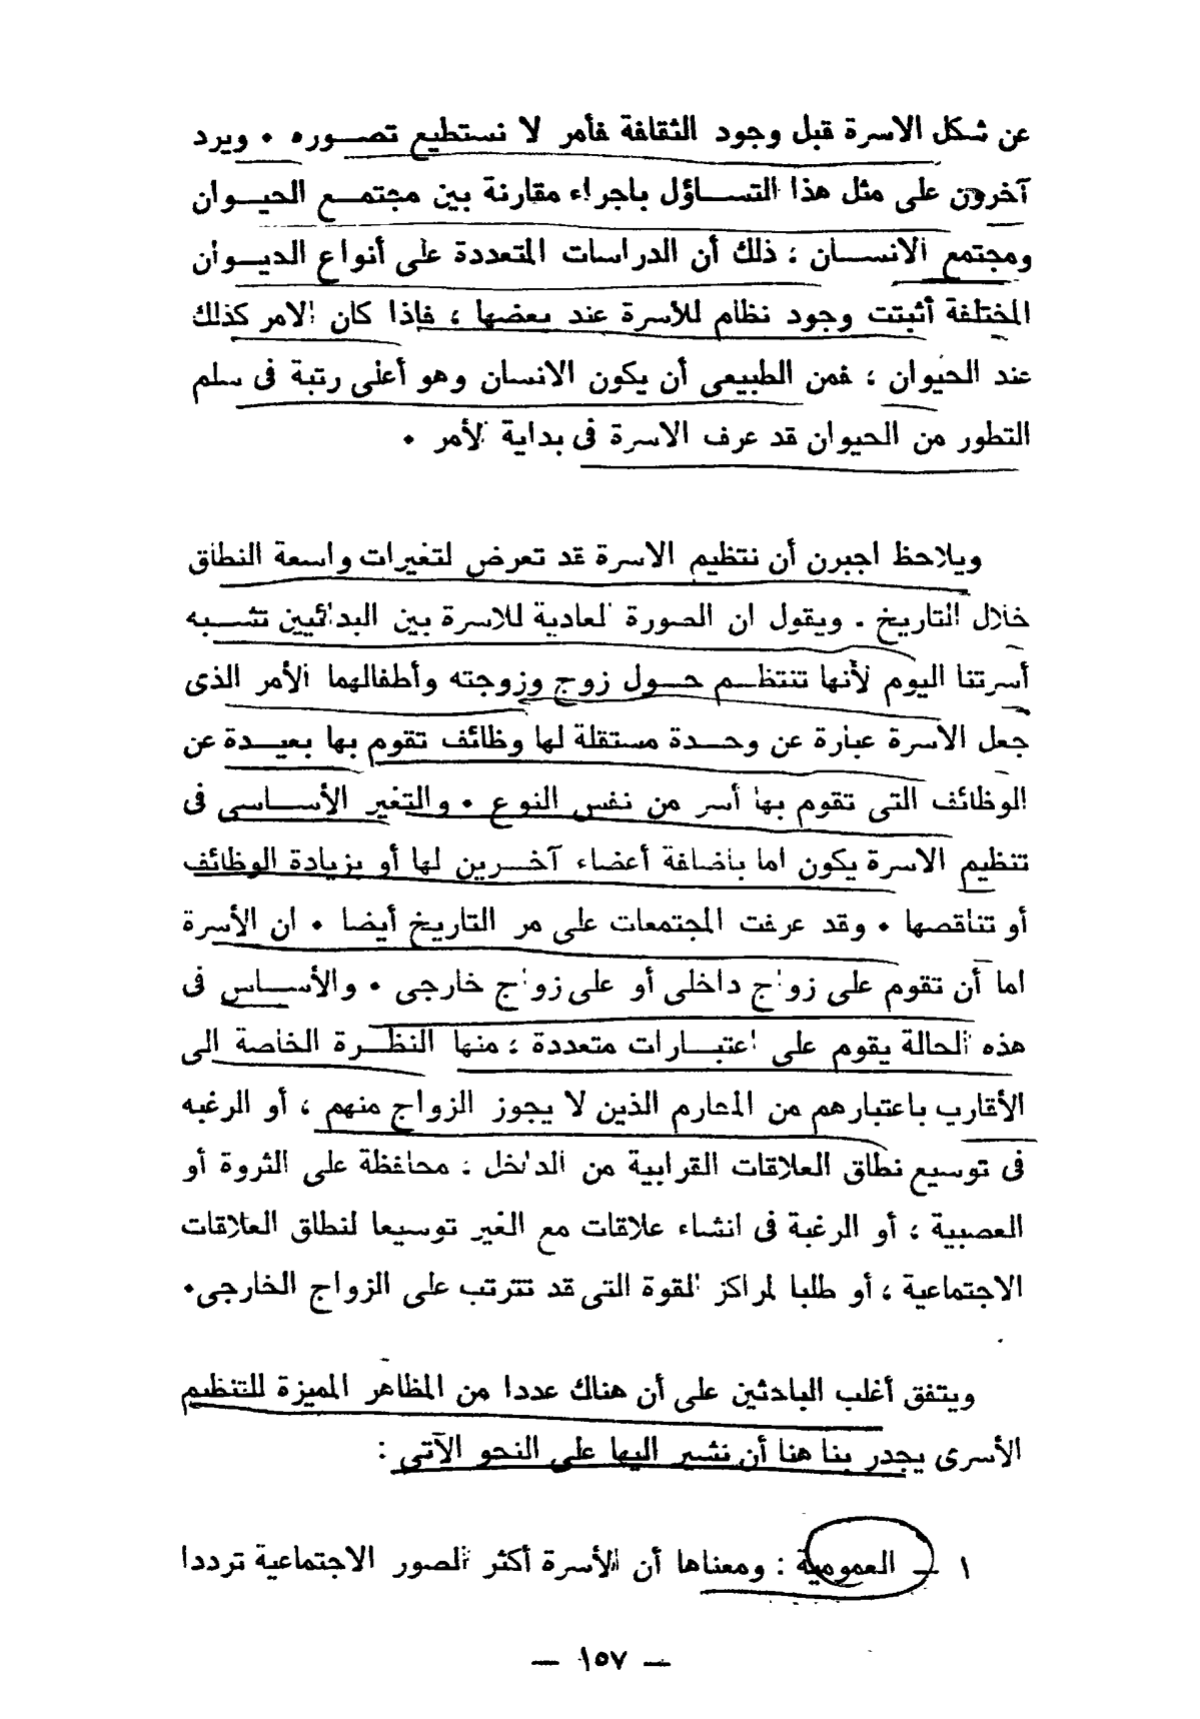 عن شكل الاسرة قبل وجود الثقافة فأمر لا نستطيع تصوره • ويرد
آخرون على مثل هذا التساؤل باجراء مقارنة بين مجتمع الحيوان
ومجتمع الانسان ؛ ذلك أن الدراسات المتعددة على أنواع الحيوان
المختلفة أثبتت وجود نظام للأسرة عند بعضها ، فاذا كان الامر كذلك
عند الحيوان ؛ فمن الطبيعى أن يكون الانسان وهو أعلى رتبة فى سلم
التطور من الحيوان قد عرف الاسرة فى بداية الأمر •
ويلاحظ اجبرن أن نتظيم الاسرة قد تعرض لتغيرات واسعة النطاق
خلال التاريخ . ويقول ان الصورة العادية للاسرة بين البدائيين تشبه
أسرتنا اليوم لأنها تنتظم حول زوج وزوجته وأطفالهما الأمر الذى
جعل الاسرة عبارة عن وحدة مستقلة لها وظائف تقوم بها بعيدة عن
الوظائف التى تقوم بها أسر من نفس النوع • والتغير الأساسى فى
تنظيم الاسرة يكون اما بأضافة أعضاء آخرين لها أو بزيادة الوظائف
أو تناقصها • وقد عرفت المجتمعات على مر التاريخ أيضا • ان الأسرة
اما أن تقوم على زواج داخلى أو على زواج خارجى • والأساس فى
هذه الحالة يقوم على اعتبارات متعددة ؛ منها النظرة الخاصة الى
الأقارب باعتبارهم من المحارم الذين لا يجوز الزواج منهم ، أو الرغبه
فى توسيع نطاق العلاقات القرابية من الداخل ؛ محافظة على الثروة أو
العصبية ؛ أو الرغبة فى انشاء علاقات مع الغير توسيعا لنطاق العلاقات
الاجتماعية ، أو طلبا لمراكز القوة التى قد تترتب على الزواج الخارجى•
ويتفق أغلب الباحثين على أن هناك عددا من المظاهر المميزة للتنظيم
الأسرى يجدر بنا هنا أن نشير اليها على النحو الآتى :
١ — العمومية : ومعناها أن الأسرة أكثر الصور الاجتماعية ترددا
— ١٥٧ —